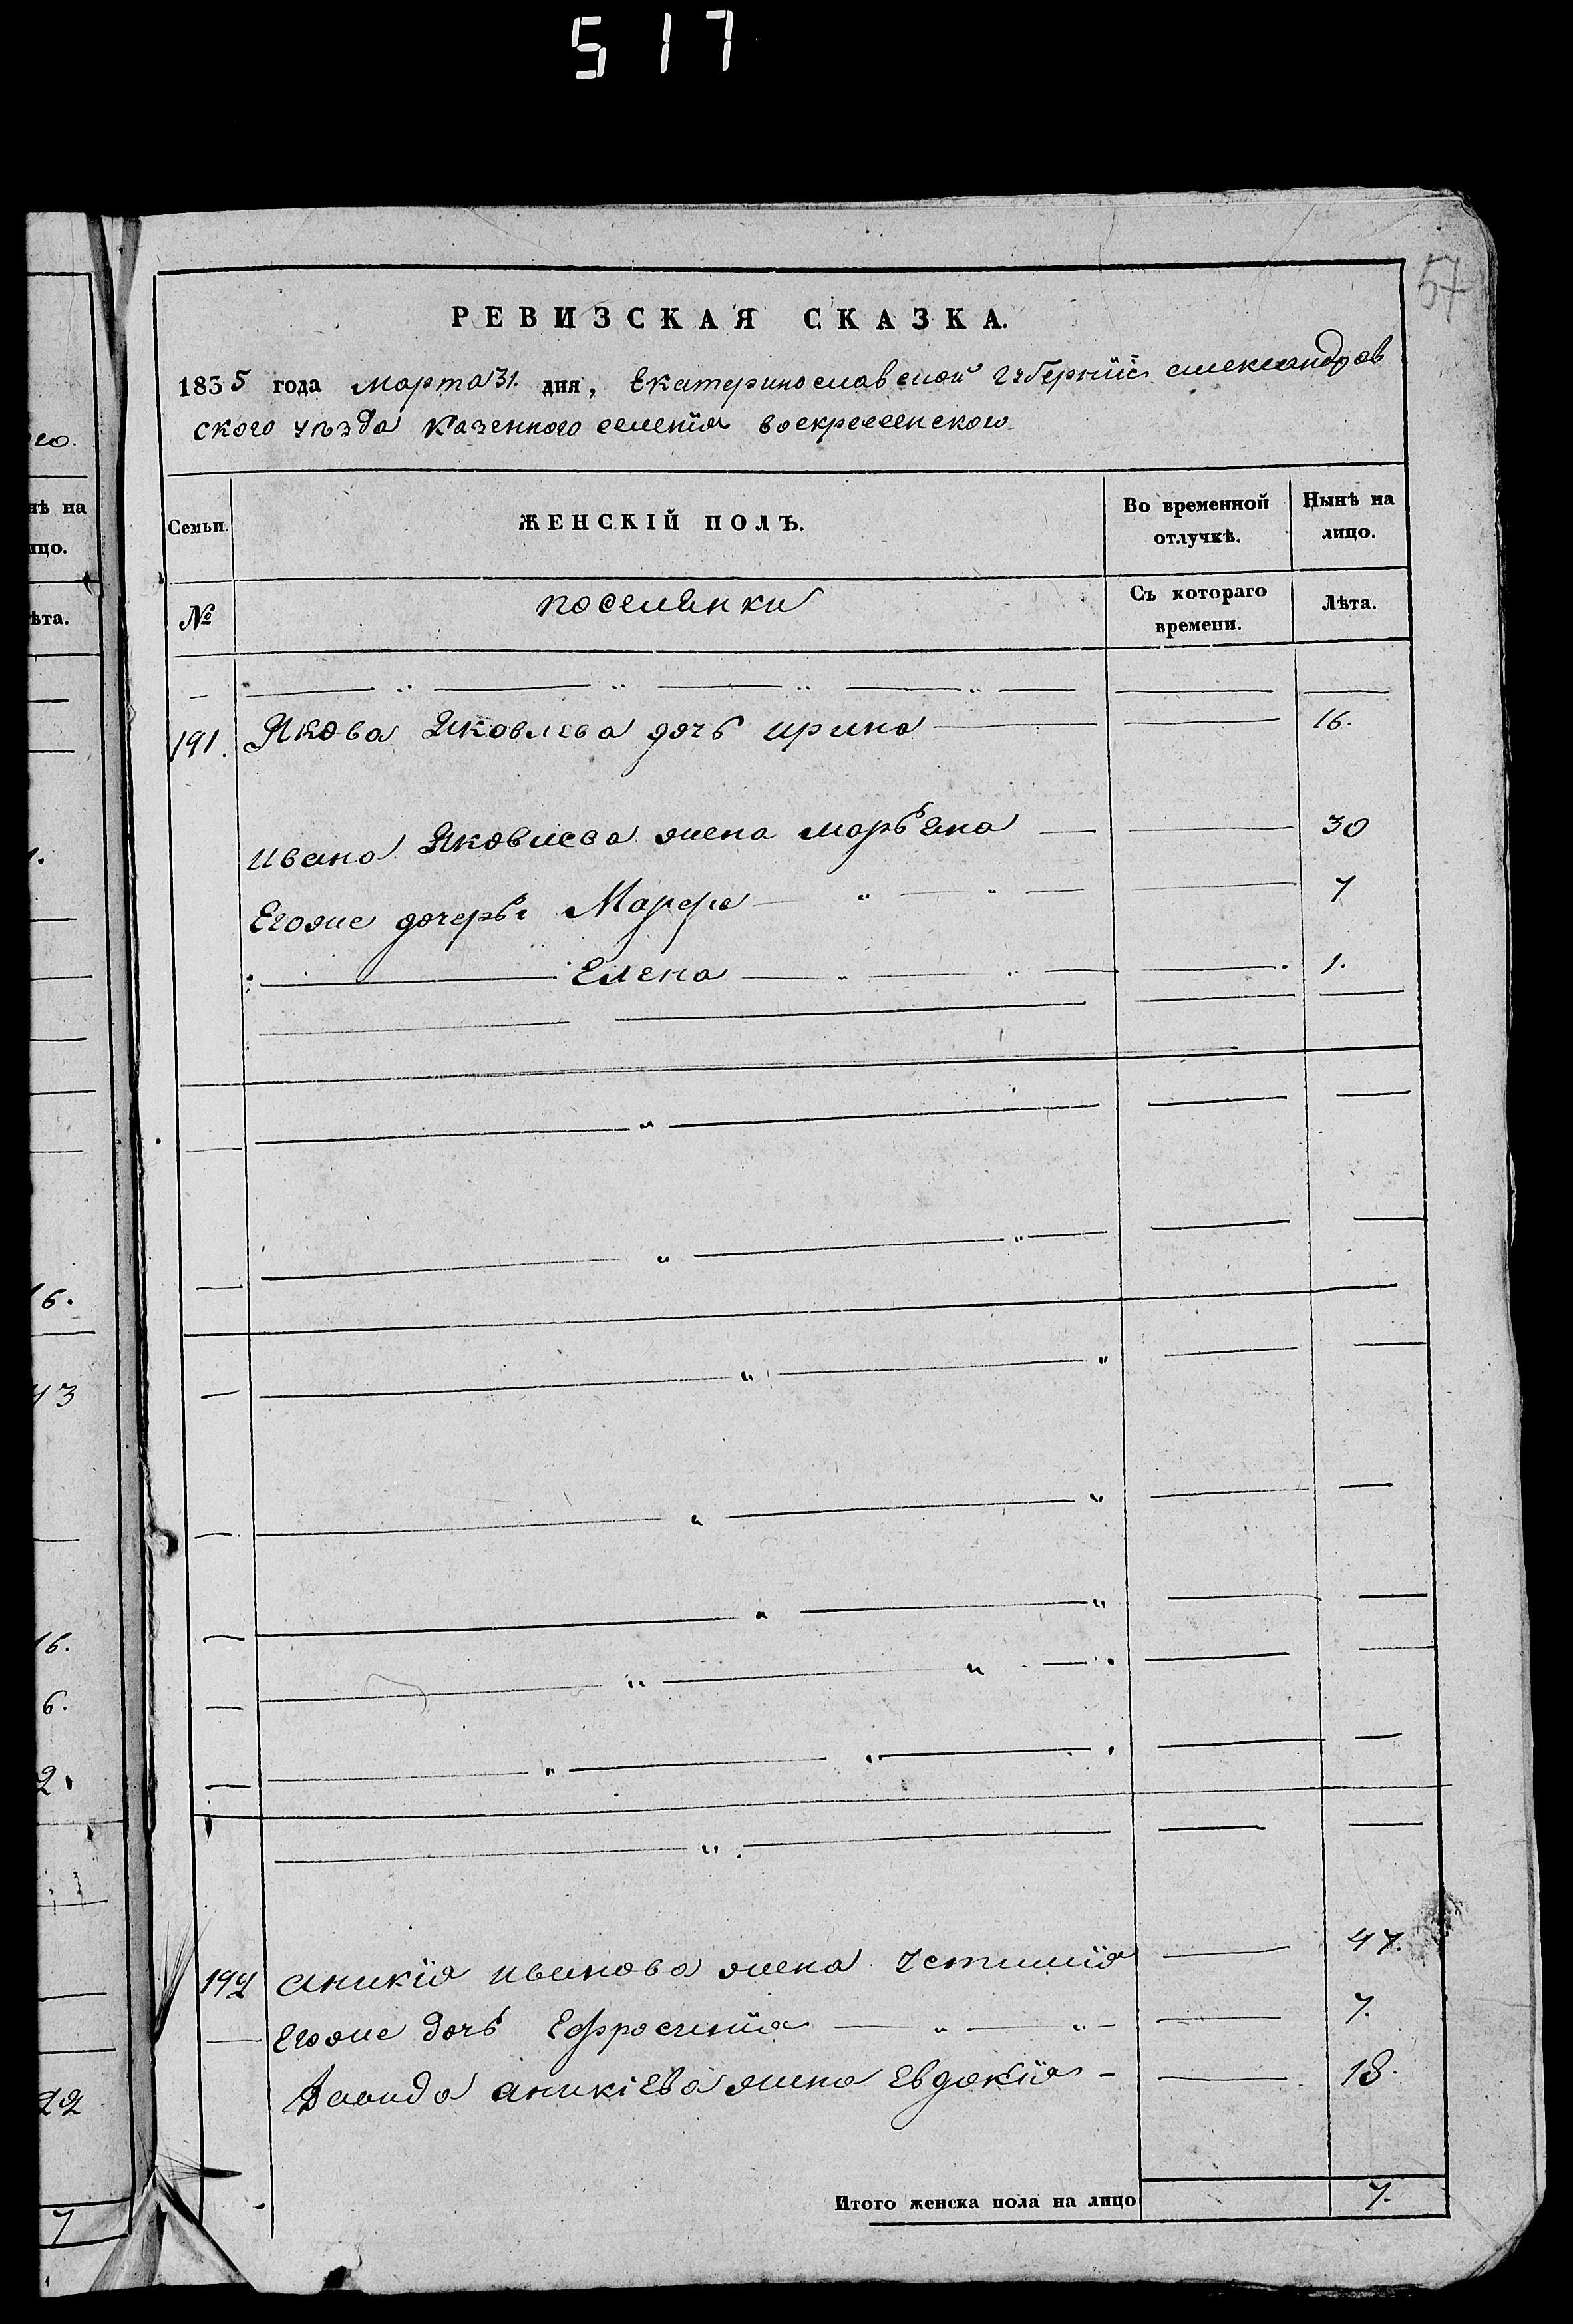 517
57
РЕВИЗСКАЯ СКАЗКА.
1835 года марта 31. дня, Екатеринославской Губернии александров
ского уѣзда казенного селенія воскресенского
нѣ на
Семьи.
ЖЕНСКІЙ ПОЛЪ.
Во временной отлучкѣ.
Нынѣ на лицо.
№
поселянки
Съ котораго времени.
Лѣта.
191. Якова Яковлева дочь ирина 16.
ивана Яковлева жена марьяна 30
Егоже дочерьи Марфа 7
Елена 1.
192 аникія иванова жена Устинія 47.
Егоже дочь Ефросинія 7.
Давида аникіева жена Евдокія 18.
Итого женска пола на лицо 7.
16.
43
16.
6.
2.
22
7